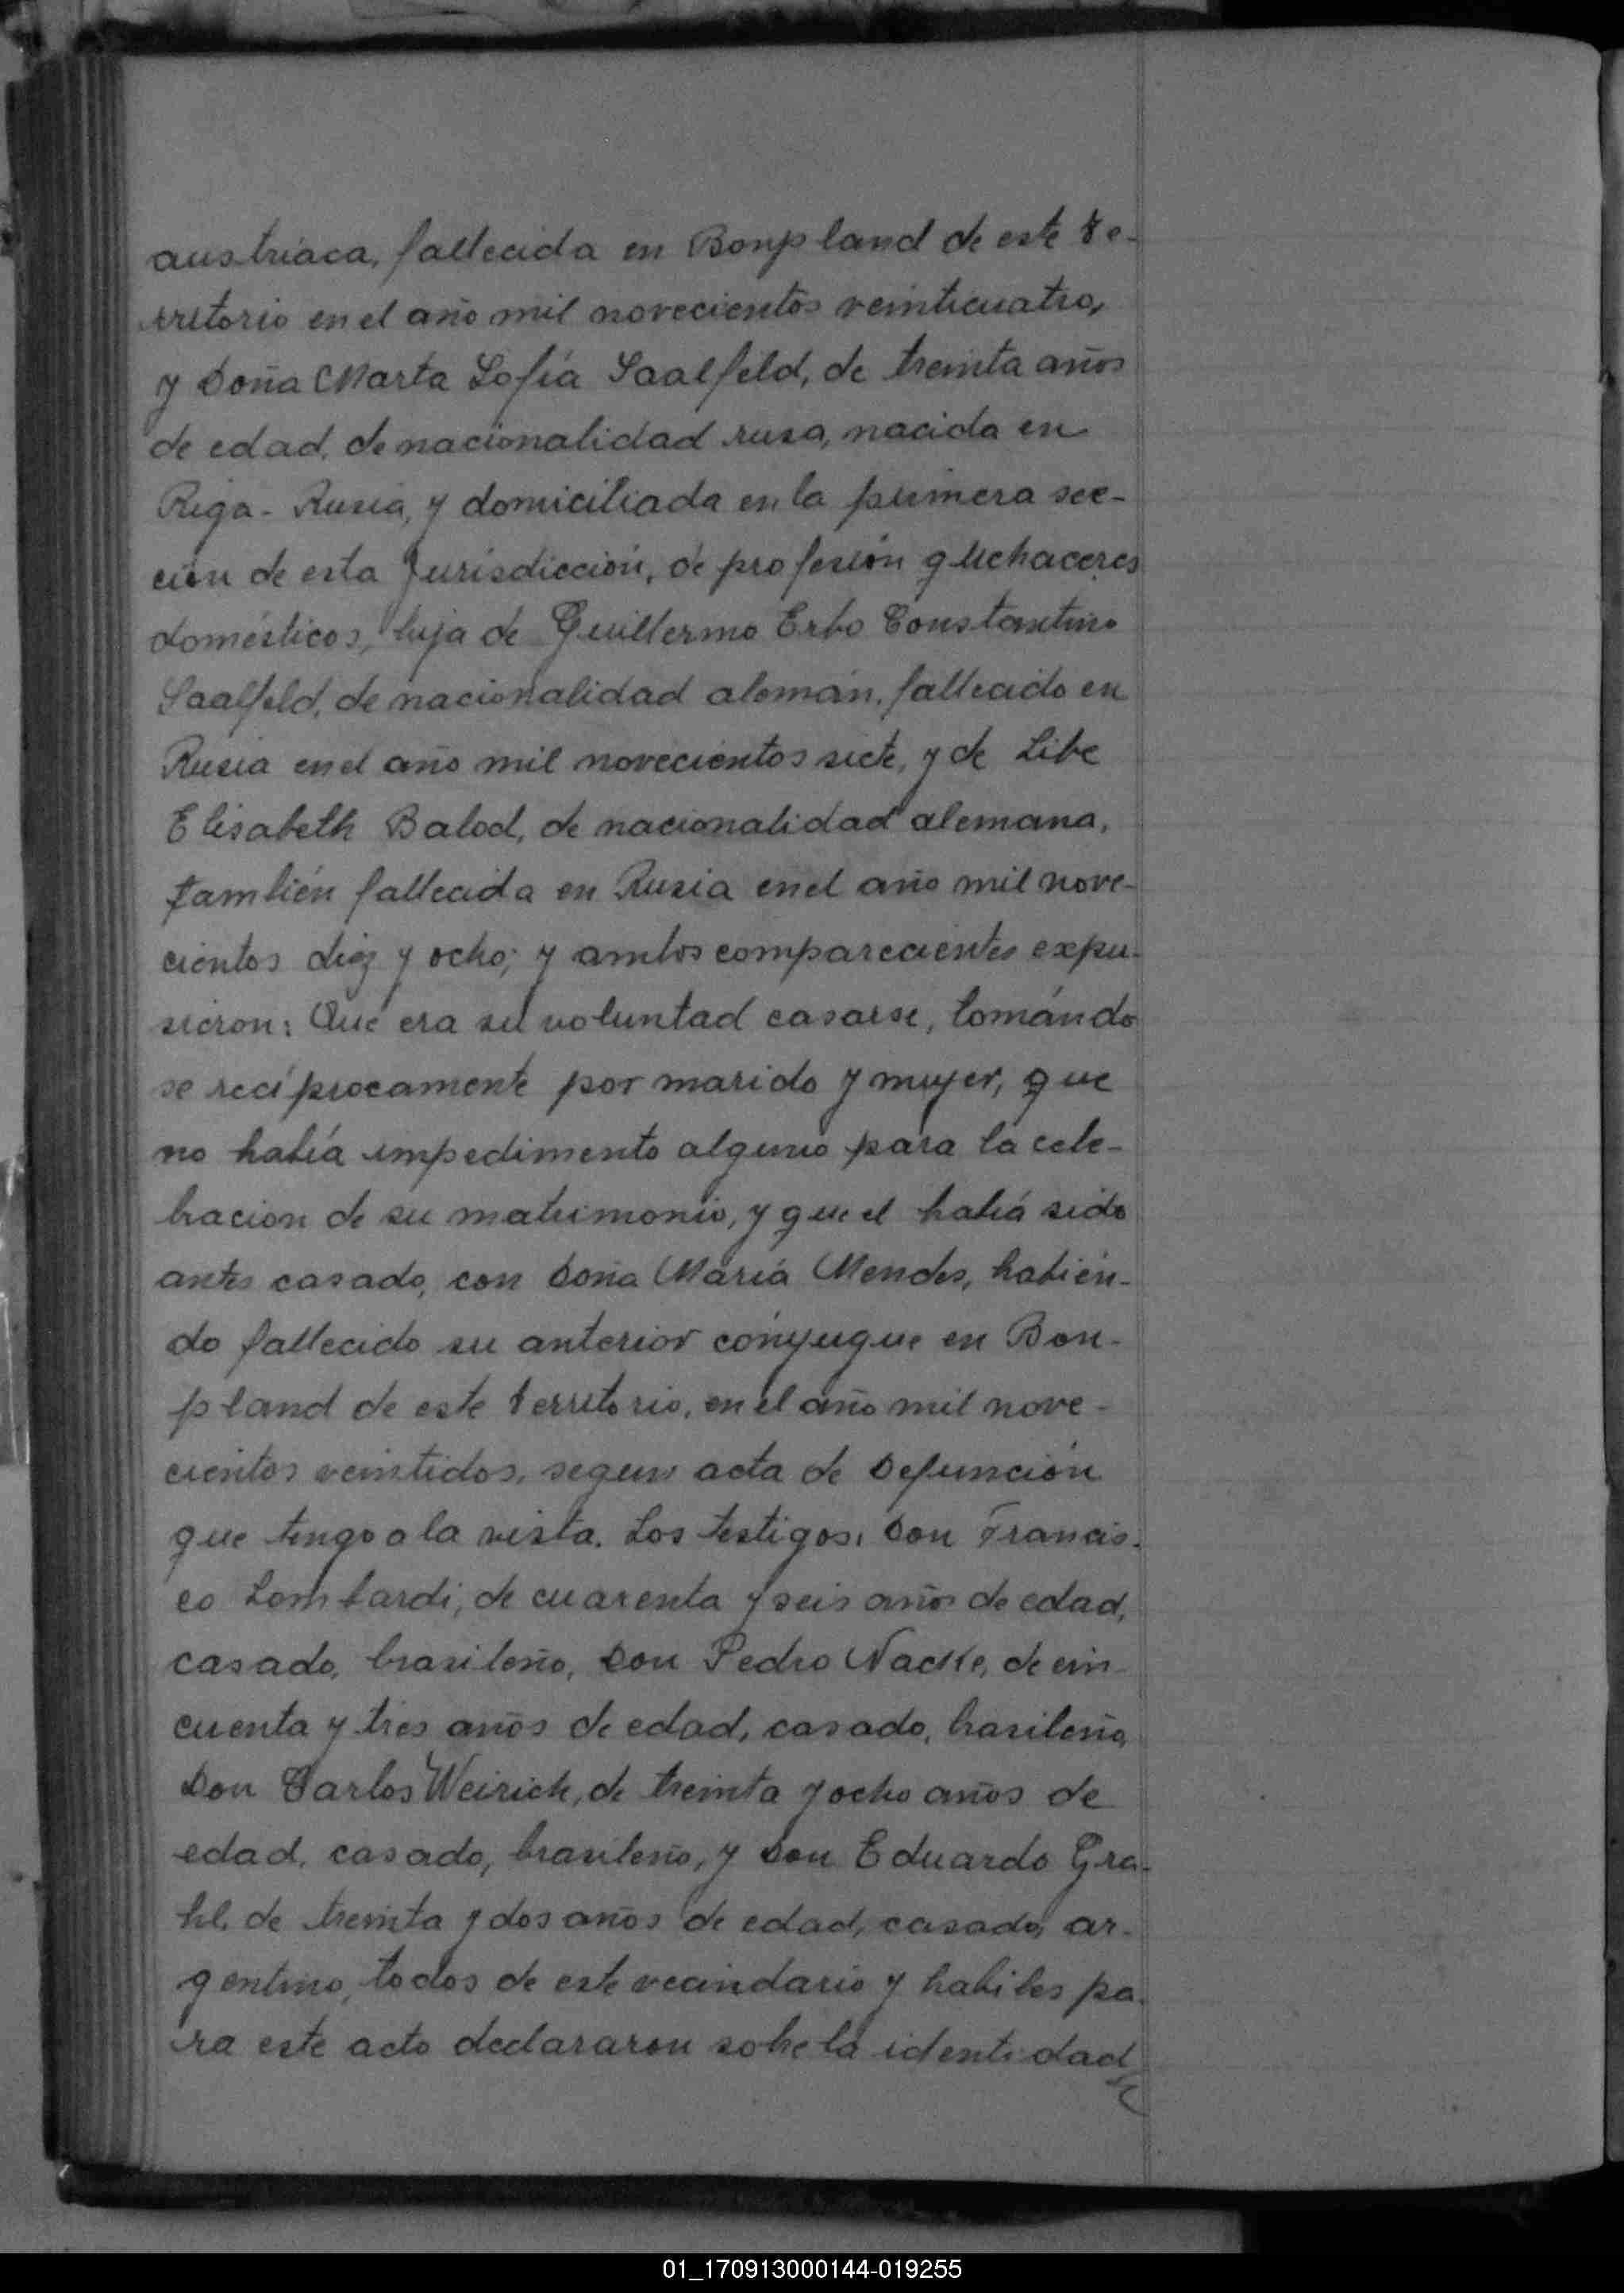 austriaca, fallecida en Bonpland de este Te-
rritorio en el año mil novecientos veinticuatro,
y Doña Marta Sofía Saalfeld, de treinta años
de edad, de nacionalidad rusa, nacida en
Riga - Rusia, y domiciliada en la primera sec-
ción de esta Jurisdicción, de profesión quehaceres
domésticos, hija de Guillermo Erbo Constantino
Saalfeld, de nacionalidad alemán, fallecido en
Rusia en el año mil novecientos siete, y de Libe
Elisabeth Balod, de nacionalidad alemana,
también fallecida en Rusia en el año mil nove-
cientos diez y ocho; y ambos comparecientes expu-
sieron: Que era su voluntad casarse, tomándo
se recíprocamente por marido y mujer, que
no había impedimento alguno para la cele-
bracion de su matrimonio, y que el había sido
antes casado, con Doña María Mendes, habién-
do fallecido su anterior cónyugue en Bon-
pland de este territorio, en el año mil nove-
cientos veintidos, segun acta de Defunción
que tengo a la vista. Los testigos: Don Francis-
co Lombardi, de cuarenta y seis años de edad,
casado, brasileño, Don Pedro Nacke, de cin-
cuenta y tres años de edad, casado, brasileño,
Don Carlos Weirich, de treinta y ocho años de
edad, casado, brasileño, y Don Eduardo Gra-
hl, de treinta y dos años de edad, casado, ar-
gentino, todos de este vecindario y habiles pa-
ra este acto declararon sobre la identidad
01_170913000144-019255